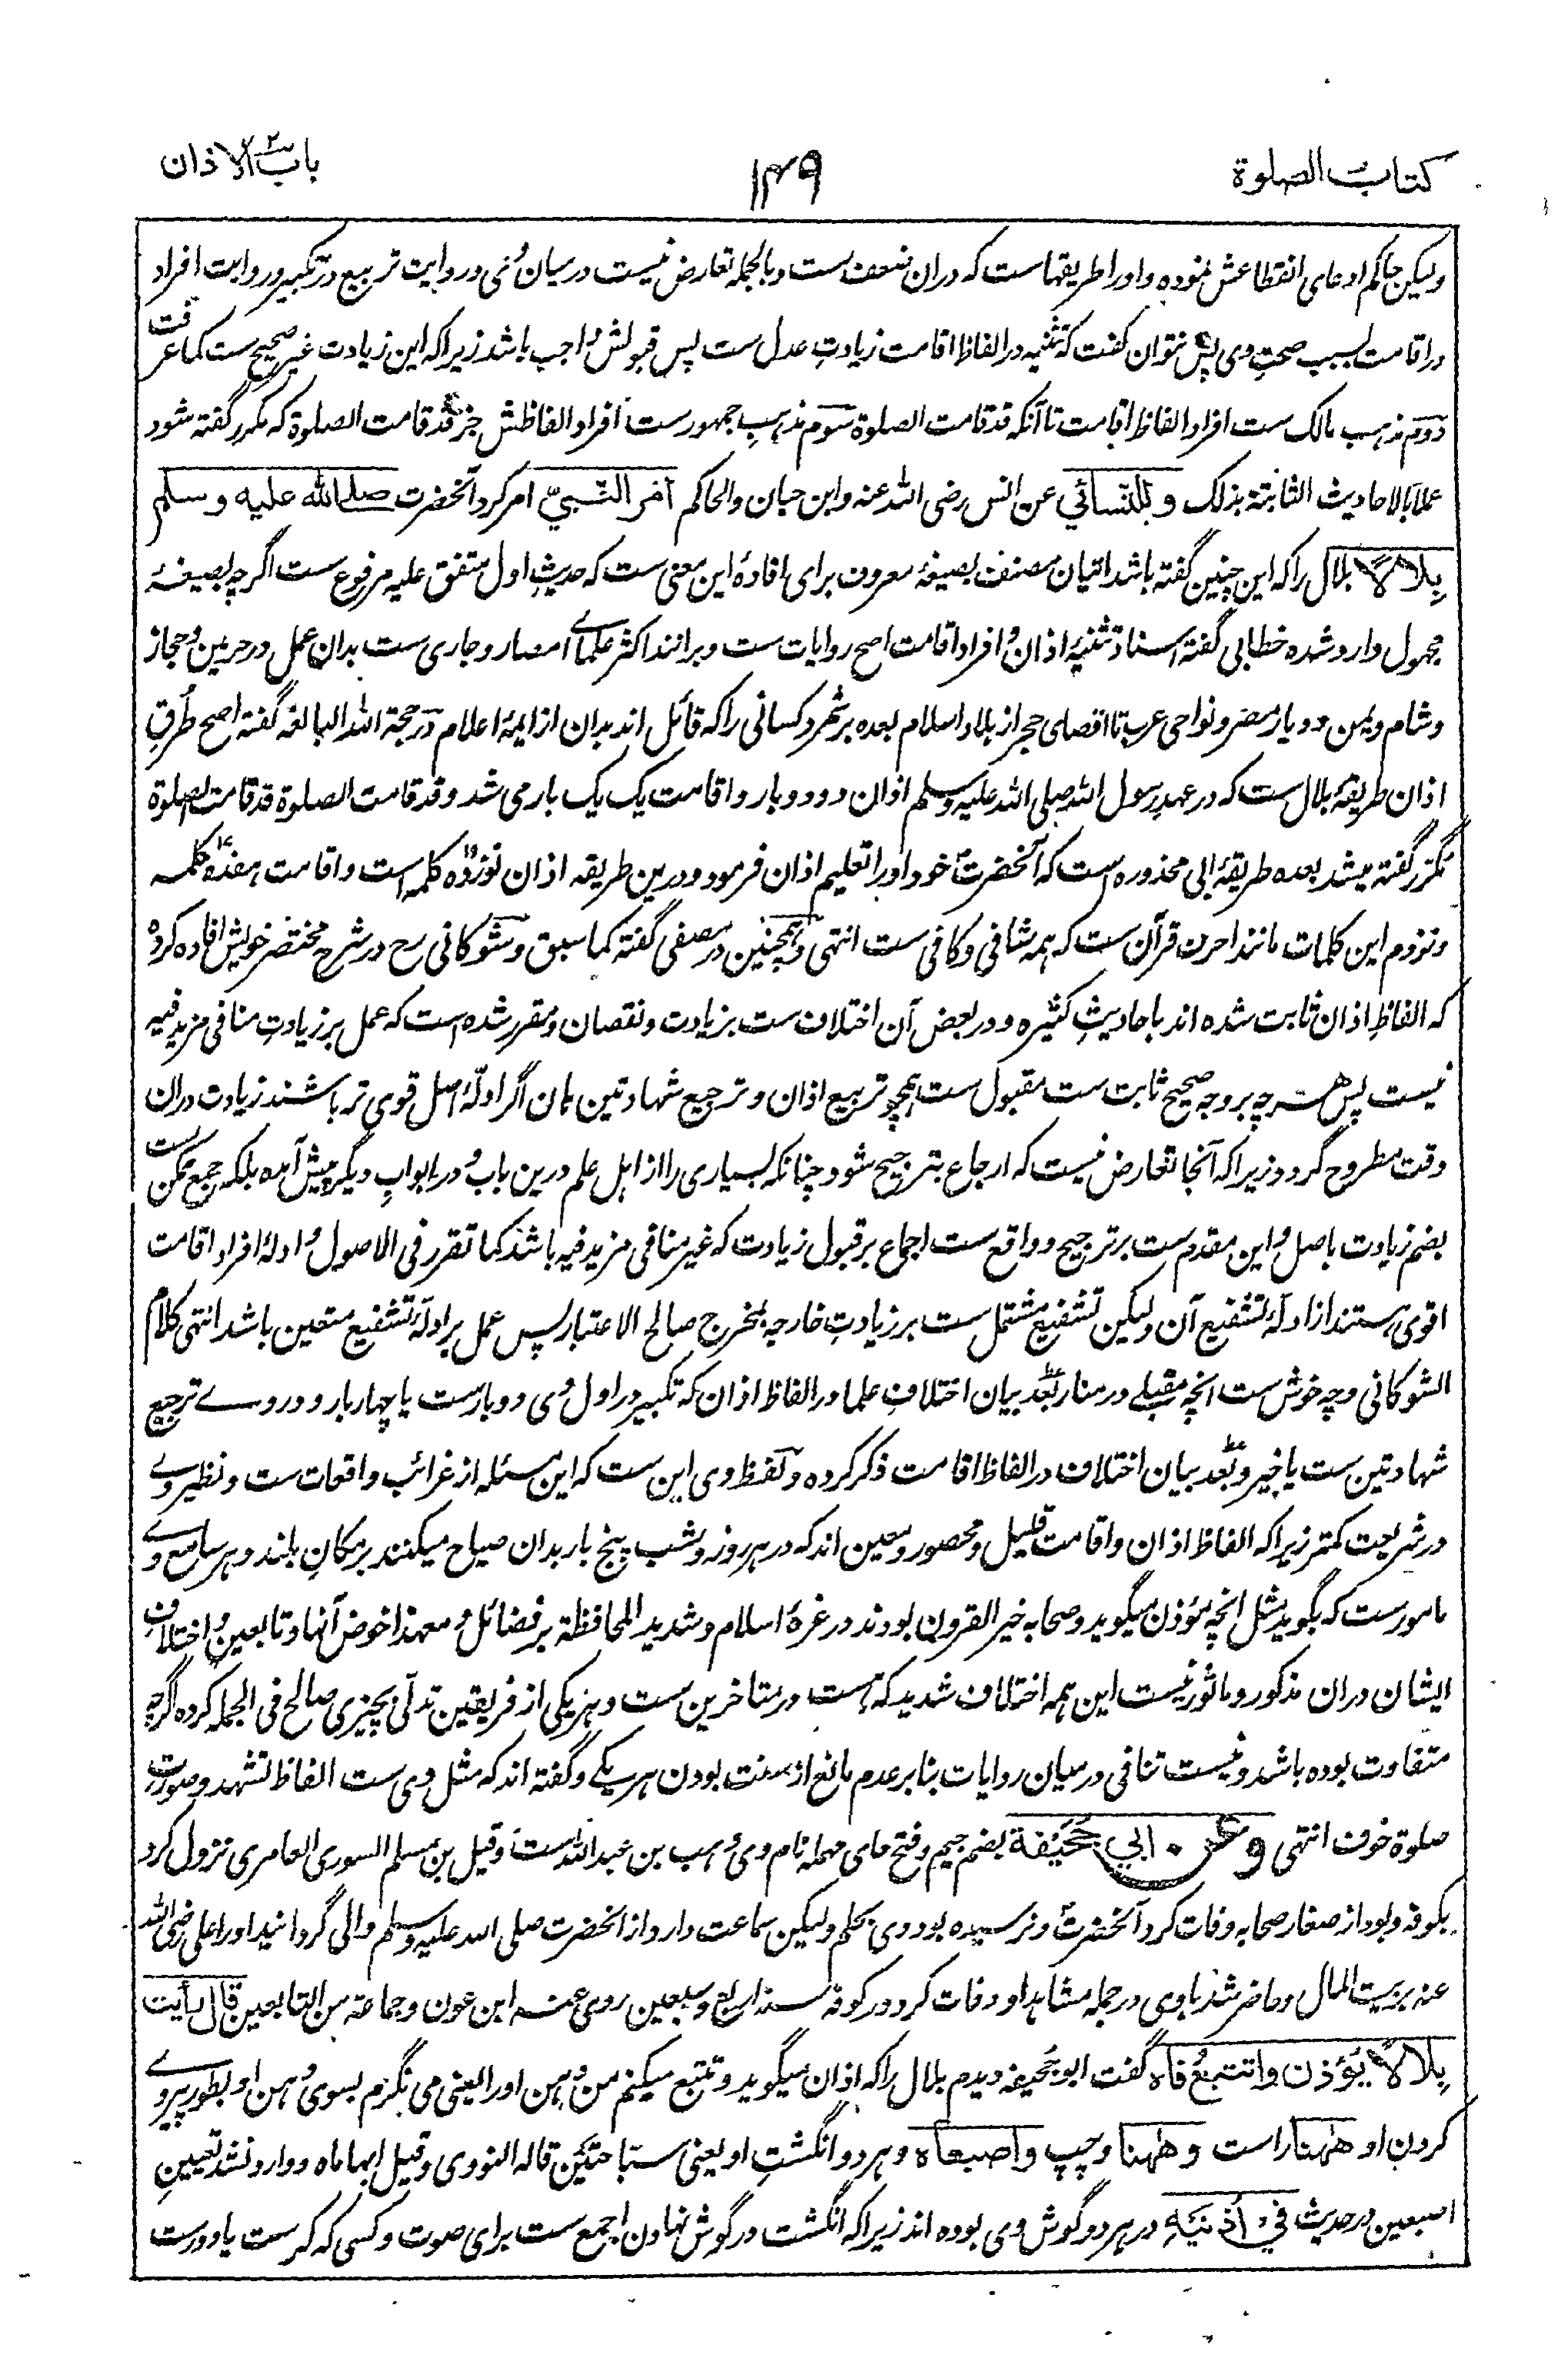 کتاب الصلوة
۱۴۹
باب الاذان
ولیکن حاکم ادعای انقطاعش نموده و او را طریقهاست که دران ضعف ست و بالجمله تعارض نیست درمیان وی و روایت تربیع در تکبیر و روایت افراد
در اقامت بسبب صحت وی پس نتوان گفت که تثنیه در الفاظ اقامت زیادت عدل ست پس قبولش واجب باشد زیراکه این زیادت غیر صحیح ست کما عرفت
دوم مذهب مالک ست افراد الفاظ اقامت تا آنکه قد قامت الصلوة سوم مذهب جمهور ست افراد الفاظش جز قد قامت الصلوة که مکرر گفته شود
عملا بالاحادیث الثابتة بذلک و للنسائي عن انس رضی الله عنه وابن حبان والحاکم امر النبيّ امر کرد آنحضرت صلے الله علیه وسلم
بِلالاً بلال را که این چنین گفته باشد اتیان مصنف بصیغهٔ معروف برای افادهٔ این معنی ست که حدیث اول متفق علیه مرفوع ست اگرچه بصیغهٔ
مجهول وارد شده خطابی گفته اسناد تثنیهٔ اذان و افراد اقامت اصح روایات ست و برانند اکثر علمای امصار و جاری ست بدان عمل در حرمین و حجاز
و شام و یمن و دیار مصر و نواحی عرب تا اقصای حجر از بلاد اسلام بعده بر شمرد کسانی را که قائل اند بدان از ایمهٔ اعلام در حجة الله البالغه گفته اصح طُرقِ
اذان طریقهٔ بلال ست که در عهد رسول الله صلی الله علیه وسلم اذان دو دو بار و اقامت یک یک بار می شد و قد قامت الصلوة قد قامت الصلوة
مکرر گفته میشد بعده طریقهٔ ابی محذوره است که آنحضرت خود او را تعلیم اذان فرمود و درین طریقه اذان نوزده کلمه است و اقامت هفده کلمه
و نزدم این کلمات مانند احرف قرآن ست که همه شافی و کافی ست انتهی و همچنین در مصفی گفته کما سبق و شوکانی رح در شرح مختصر خویش افاده کرده
که الفاظ اذان ثابت شده اند باحادیث کثیره و در بعض آن اختلاف ست بزیادت و نقصان و مقرر شده است که عمل بر زیادت منافی مزید فیه
نیست پس هرچه بر وجه صحیح ثابت ست مقبول ست همچو تربیع اذان و ترجیع شهادتین هان اگر ادلّهٔ اصل قوی تر باشند زیادت دران
وقت مطروح گردد زیراکه آنجا تعارض نیست که ارجاع بترجیح شود چنانکه بسیاری را از اهل علم درین باب و در ابواب دیگر پیش آمده بلکه جمع ممکن ست
بضم زیادت باصل و این مقدم ست بر ترجیح و واقع ست اجماع بر قبول زیادت که غیر منافی مزید فیه باشد کما تقرر فی الاصول و ادلهٔ افراد اقامت
اقوی هستند از ادلهٔ تشفیع آن ولیکن تشفیع مشتمل ست بر زیادت خارجه بمخرج صالح الاعتبار پس عمل بر ادلهٔ تشفیع متعین باشد انتهی کلام
الشوکانی و چه خوش ست انچه مقبلے در منار بعد بیان اختلاف علما در الفاظ اذان که تکبیر در اول وی دو بارست یا چهار بار و در وے ترجیع
شهادتین ست یا خیر و بعد بیان اختلاف در الفاظ اقامت ذکر کرده و لفظ وی این ست که این مسئله از غرائب واقعات ست و نظیر وے
در شریعت کمتر زیراکه الفاظ اذان و اقامت قلیل و محصور و معین اند که در هر روز و شب پنج بار بدان صیاح میکنند بر مکان بلند و هر سامع وے
مامورست که بگوید مثل انچه مؤذن میگوید و صحابه خیر القرون بودند در غرهٔ اسلام و شدید المحافظة بر فضائل و معهذا خوض آنها و تابعین و اختلاف
ایشان دران مذکور و ماثور نیست این همه اختلاف شدید که هست در متاخرین ست و هر یکی از فریقین تدلّی بچیزی صالح فی الجمله کرده اگرچه
متفاوت بوده باشد و نیست تنافی درمیان روایات بنابر عدم مانع از سنت بودن هر یکے و گفته اند که مثل وی ست الفاظ تشهد و صورت
صلوة خوف انتهی وعن ابي جُحَیفة بضم جیم و فتح حای مهمله نام وی وهب بن عبد الله ست و قیل بن مسلم السوری العامری نزول کرد
بکوفه و بود از صغار صحابه وفات کرد آنحضرت و نرسیده بود وی بحلم ولیکن سماعت دارد از انحضرت صلی الله علیه وسلم والی گردانید او را علی رضی الله
عنه بر بیت المال و حاضر شد با وی در جمله مشاهد او وفات کرد در کوفه سنه اربع و سبعین روی عنه ابن عون و جماعة من التابعین قال رأیت
بِلالاً یُؤذن واتتبعُ فاه گفت ابو جُحیفه دیدم بلال را که اذان میگوید و تتبع میکنم من دهن او را یعنی می نگرم بسوی دهن او بطور پیروے
کردن او هٰهنا راست وهٰهنا و چپ واصبعاه و هر دو انگشت او یعنی سبّاحتین قاله النووی و قیل ابهاماه و وارد نشد تعیین
اصبعین در حدیث في اُذنَیهِ در هر دو گوش وی بوده اند زیراکه انگشت در گوش نهادن اجمع ست برای صوت و کسی که کرست یا دورست